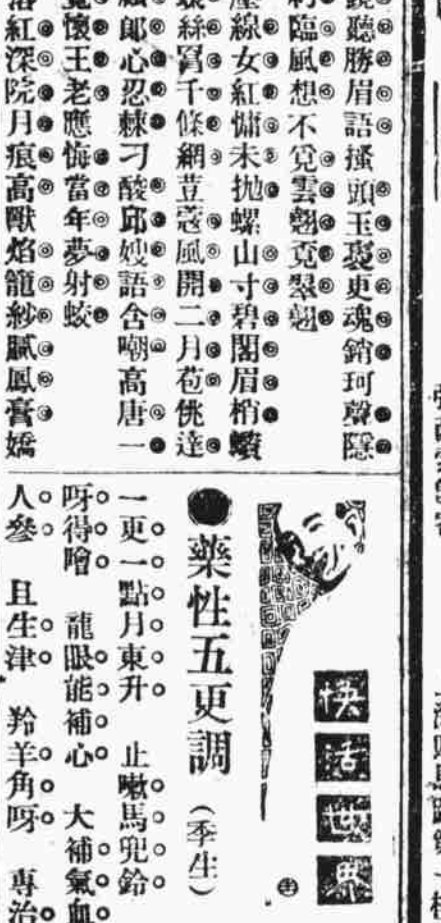 聽勝眉語搔頭玉裊更魂銷珂聲隱
臨風想不覓雲翹竞翠翹
線女紅慵未拋螺山寸碧閣眉梢蠀
絲買千條網荳蔻風開二月苞佻達
郎心忍棘刁酸邱嫂語含嘲高唐一
懷王老應悔當年夢射蛟
紅深院月痕高獸焰籠紗膩鳳膏嬌
快活世界
●藥性五更調(季生)
一更一點月東升 止嗽馬兜鈴
呀得噲 龍眼能補心 大補氣血
人參 且生津 羚羊角呀 專治